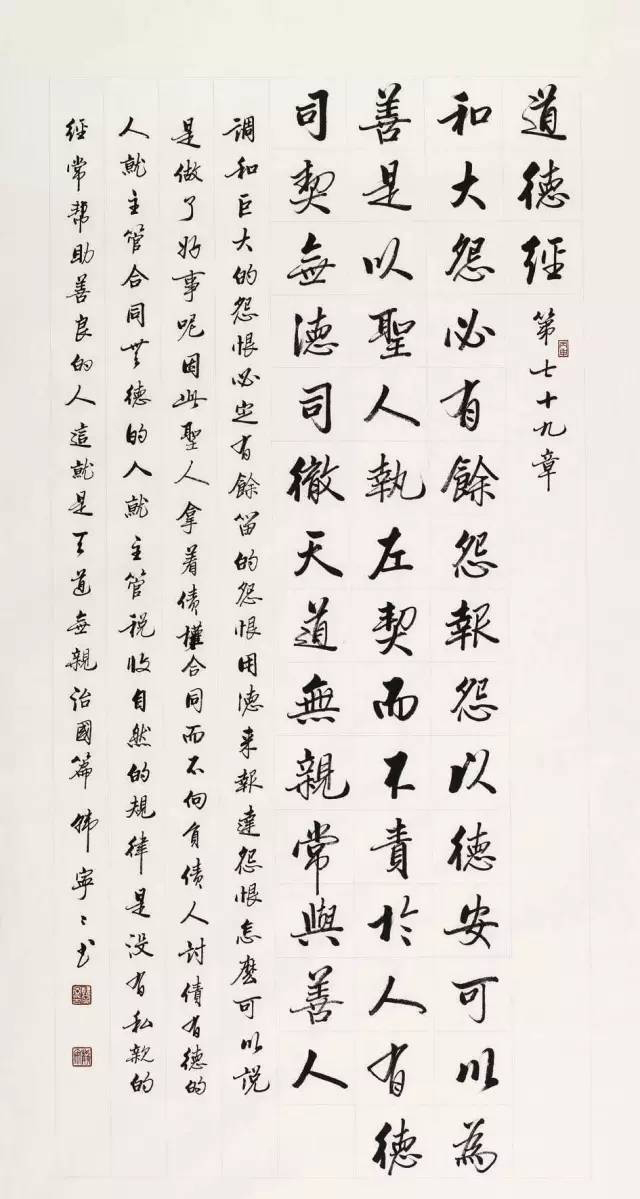 道德經
第七十九章
和大怨必有餘怨報怨以德安可以為
善是以聖人執左契而不責於人有德
司契無德司徹天道無親常與善人
调和巨大的怨恨必定有餘留的怨恨用德来報達怨恨怎麽可以説
是做了好事呢因此聖人拿着债權合同而不向負债人討债有德的
人就主管合同无德的人就主管税收自然的規律是没有私親的
經常幫助善良的人這就是天道無親治國篇韩寧寧书